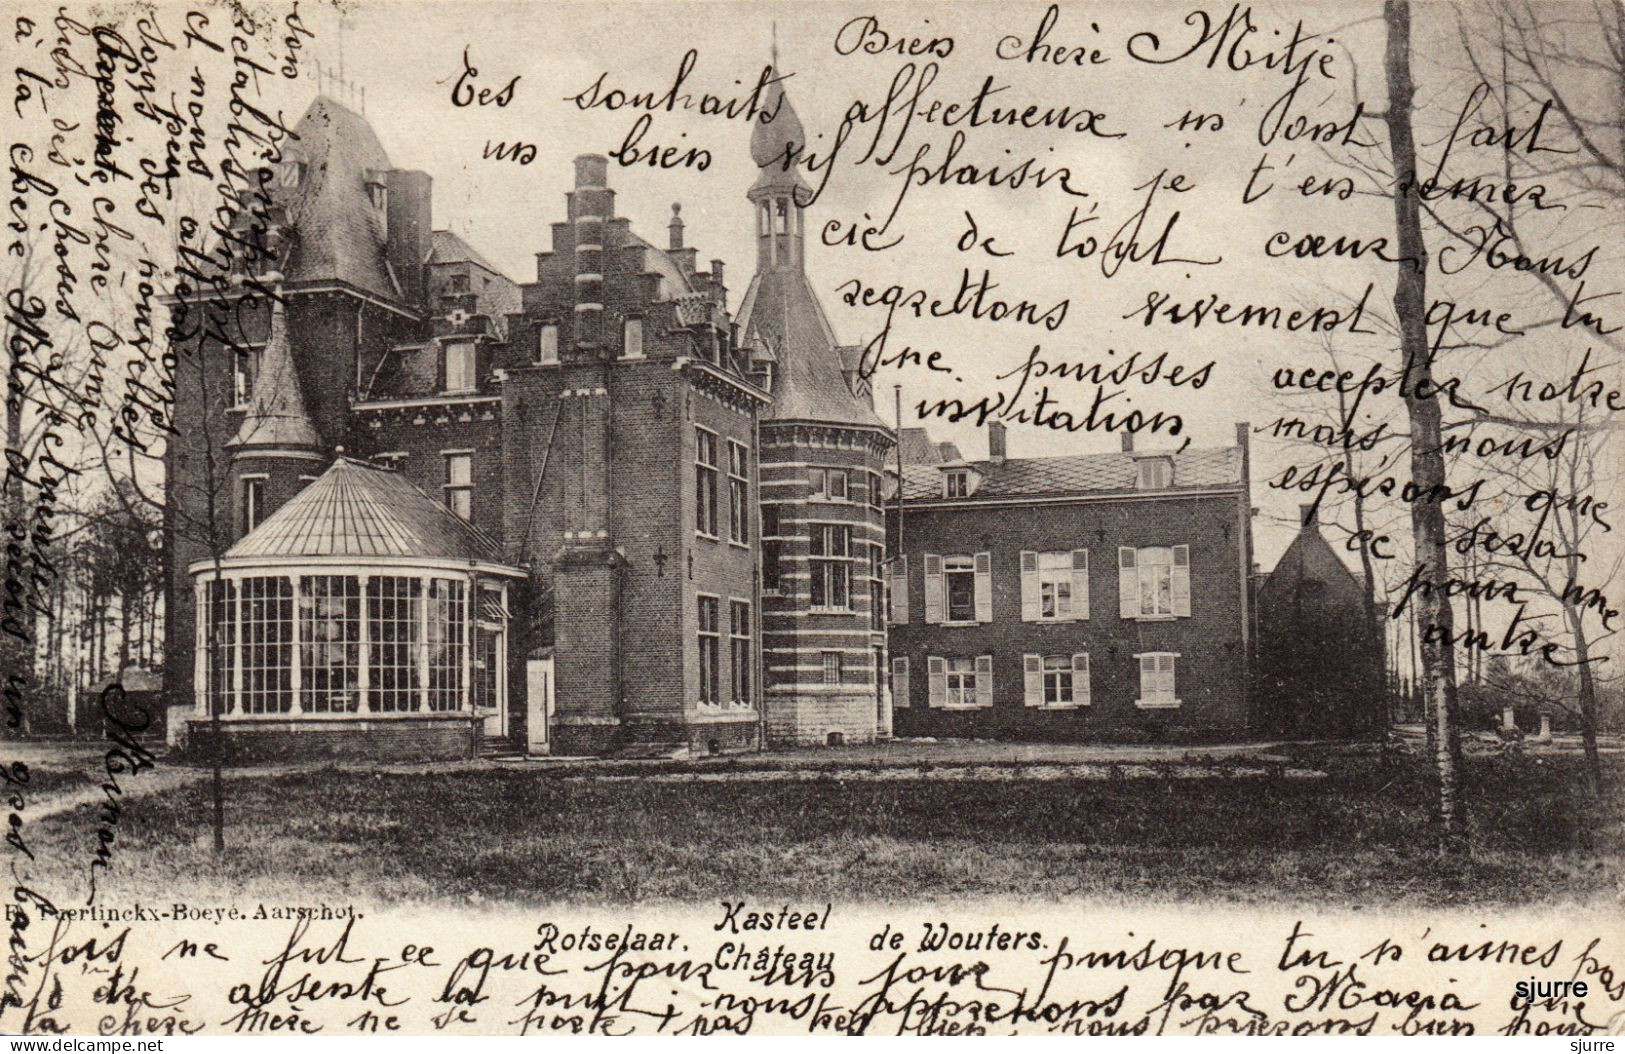 Bien chère Mitje
Tes souhaits affectueux m'ont fait
un bien vif plaisir, je t'en remer-
cie de tout cœur. Nous
regrettons vivement que tu
ne puisses accepter notre
invitation, mais nous
espérons que
ce sera
pour une
autre
fois ne fut-ce que pour un jour puisque tu n'aimes pas
d'être absente la nuit; nous apprenons par Maria que
ta chère mère ne se porte pas très bien, nous prierons bien pour
son prompte
rétablissement
et nous attendrons
sous peu
des nouvelles.
chère Anne
bien des choses affectueuses
à ta chère Mère et reçois un gros baiser
Ninon
E. Tuerlinckx-Boeyé. Aarschot.
Rotselaar. Kasteel de Wouters.
Château
sjurre
sjurre